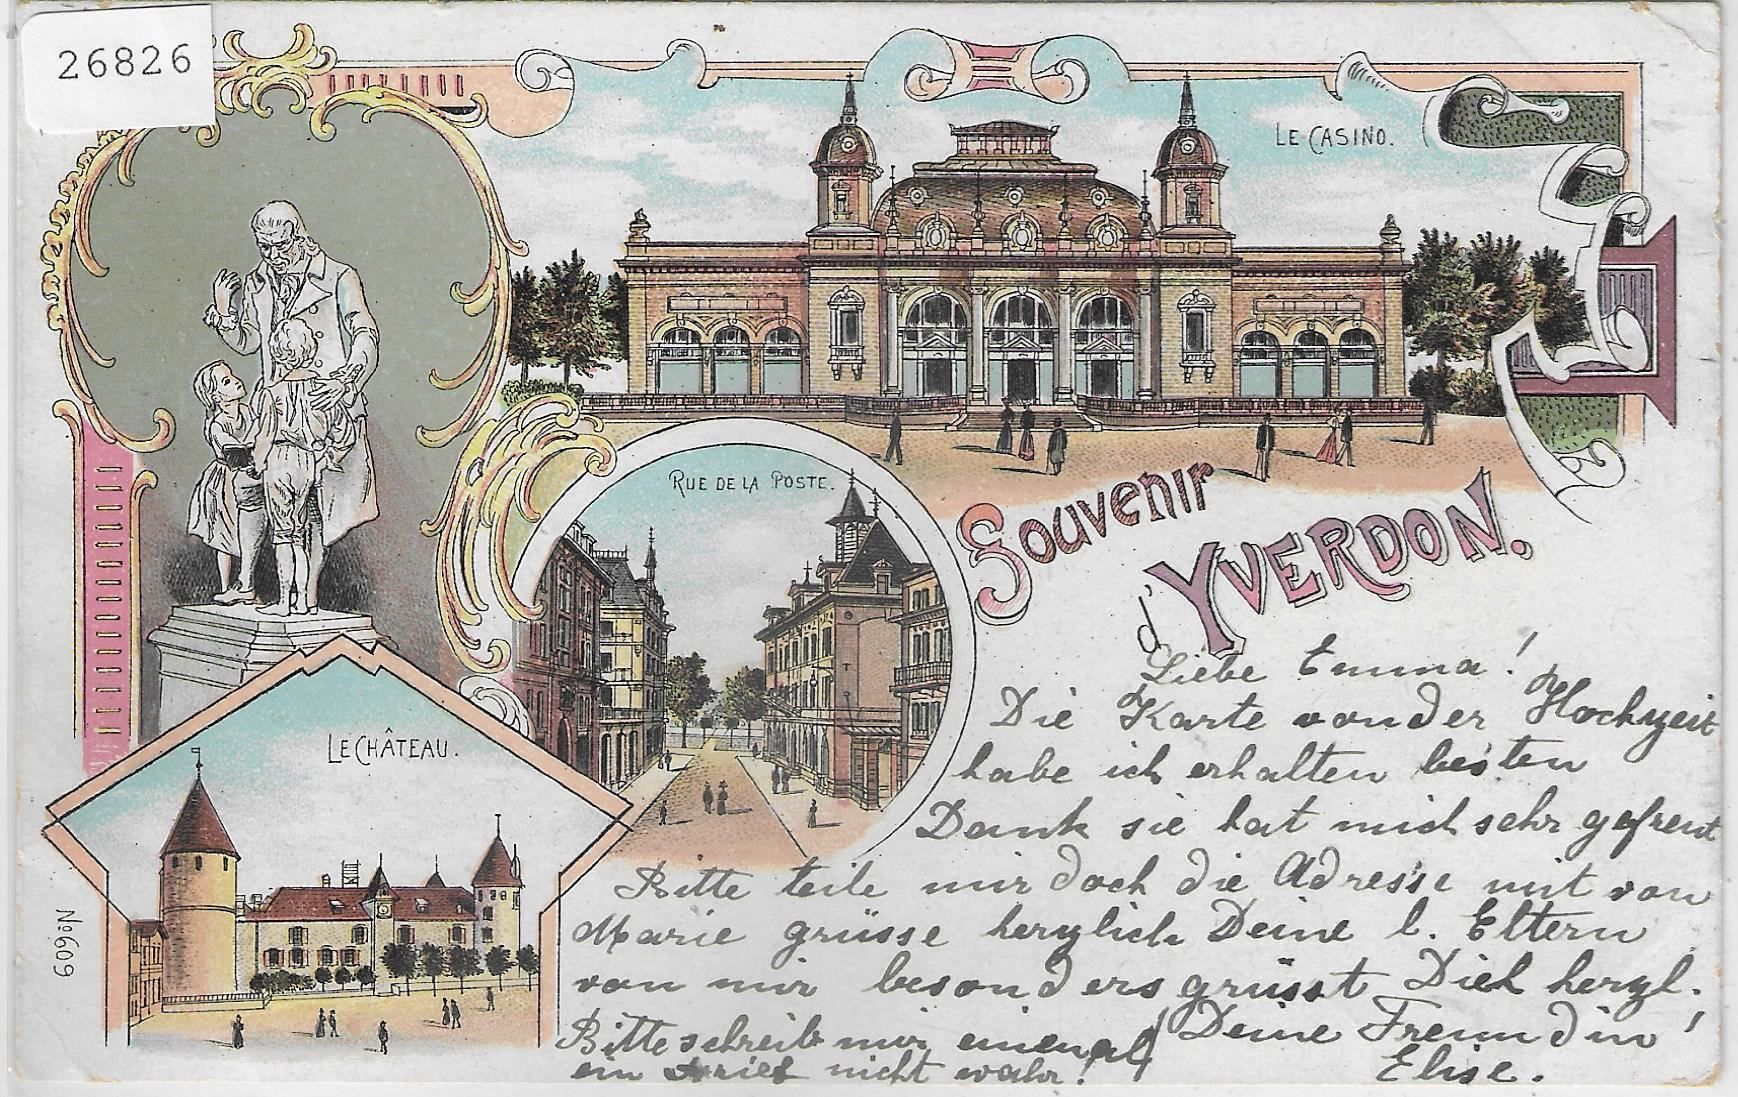 26826
LE CASINO.
RUE DE LA POSTE.
Souvenir
d'YVERDON.
LE CHÂTEAU.
No 609
Liebe Emma!
Die Karte von der Hochzeit
habe ich erhalten besten
Dank sie hat mich sehr gefreut
Bitte teile mir doch die Adresse mit von
Marie grüsse herzlich Deine l. Eltern
von mir besonders grüsst Dich herzl.
Deine Freundin!
Elise.
Bitte schreib mir einmal
ein Brief nicht wahr!